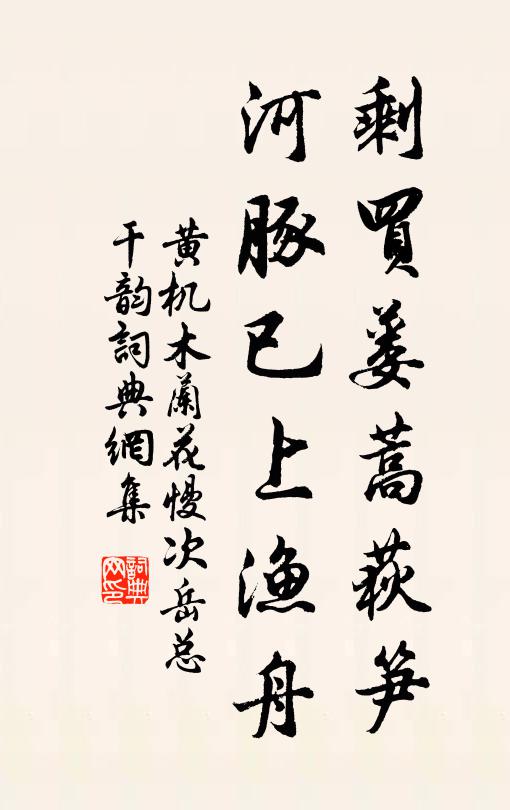 剩買蒌蒿荻笋
河豚已上漁舟
黄机木蘭花慢次岳总
干韵詞典網集
詞典网印